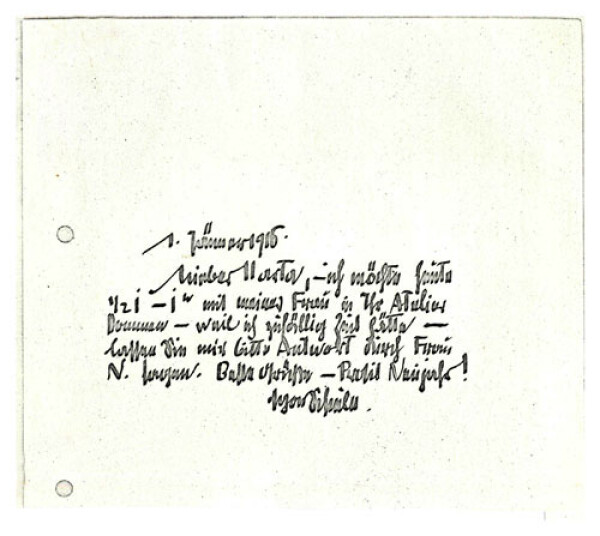 1. Jänner 1916.
Lieber Harta, – ich möchte heute
½1 – 1ʰ mit meiner Frau in Ihr Atelier
kommen – weil ich zufällig Zeit hätte –
lassen Sie mir bitte Antwort durch Frau
N. sagen. Beste Grüsse – Prosit Neujahr!
Egon Schiele.